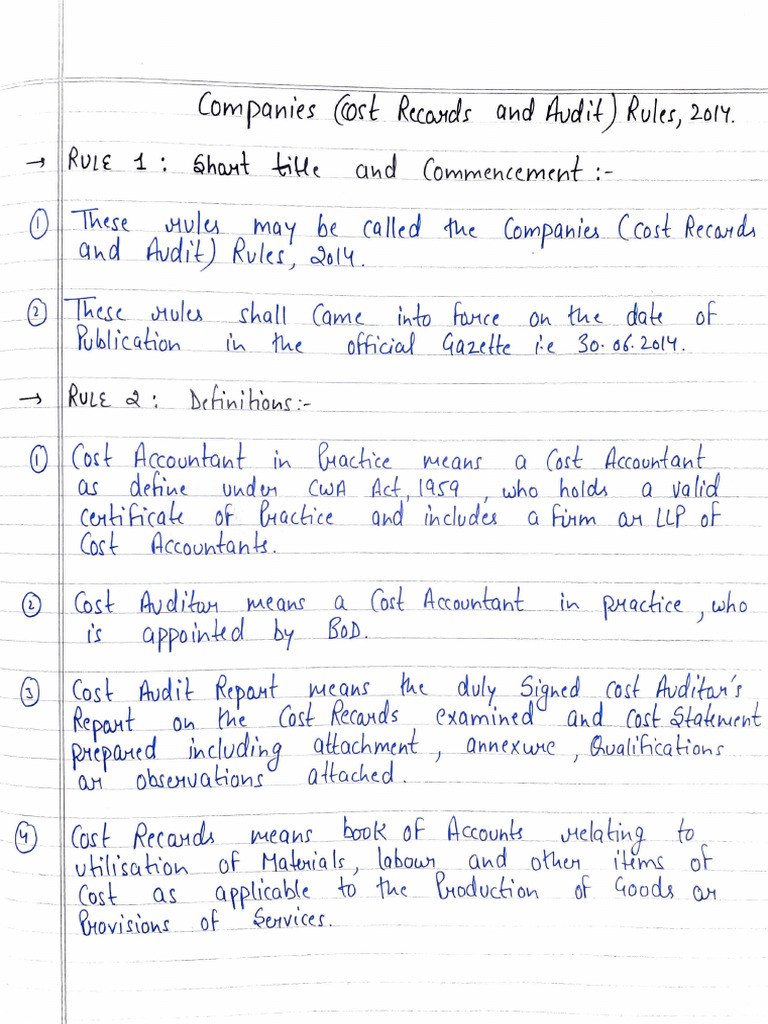 Companies (Cost Records and Audit) Rules, 2014.
→ RULE 1 : Short title and Commencement :-
① These rules may be called the Companies (Cost Records
and Audit) Rules, 2014.
② These rules shall Come into force on the date of
Publication in the official Gazette i.e 30.06.2014.
→ RULE 2 : Definitions:-
① Cost Accountant in Practice means a Cost Accountant
as define under CWA Act, 1959, who holds a valid
certificate of Practice and includes a firm or LLP of
Cost Accountants.
② Cost Auditor means a Cost Accountant in practice, who
is appointed by BoD.
③ Cost Audit Report means the duly Signed cost Auditor's
Report on the Cost Records examined and Cost Statement
prepared including attachment, annexure, Qualifications
or observations attached.
④ Cost Records means book of Accounts relating to
utilisation of Materials, labour and other items of
Cost as applicable to the Production of Goods or
Provisions of Services.